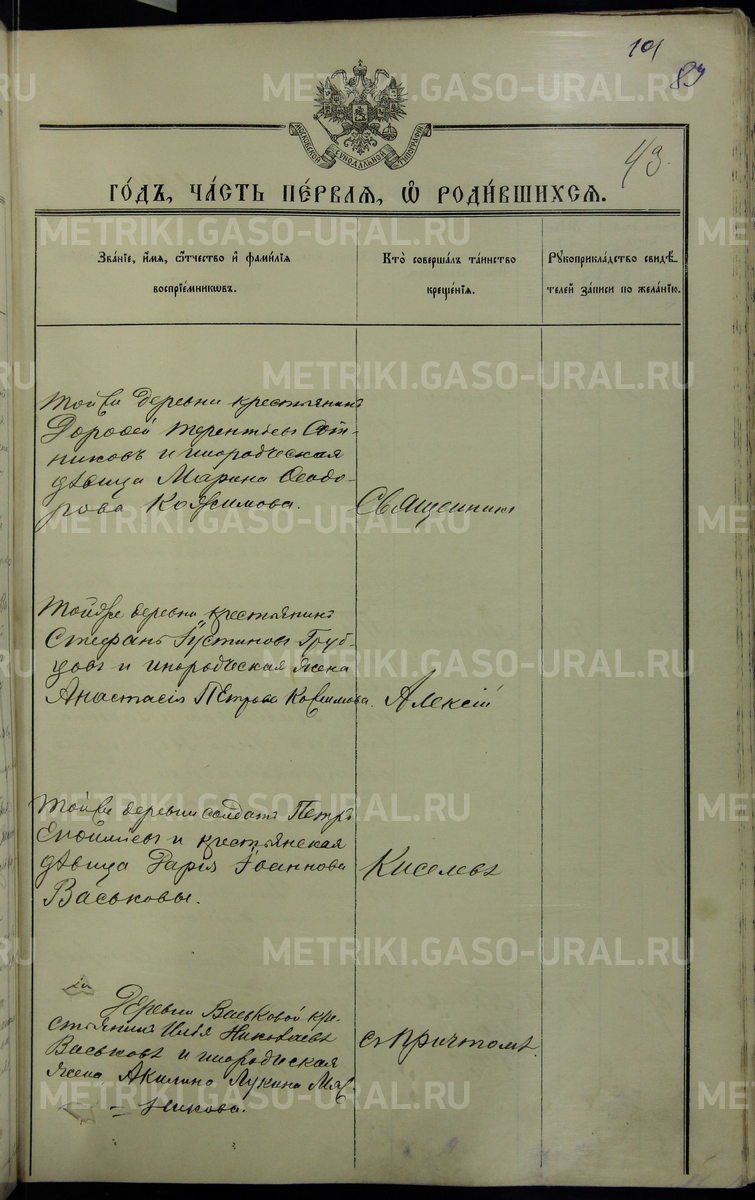 101
83
43.
МОСКОВСКОЙ СѴНОДАЛЬНОЙ ТИПОГРАФІИ
ГО́ДЪ, ЧА́СТЬ ПЕ́РВАЯ, Ѡ҆ РОДИ́ВШИХСЯ.
Зва́нїе, и҆́мѧ, ѻ҆́тчество и҆ фами́лїѧ
воспрїе́мникѡвъ.
Кто̀ соверша́лъ та́инство
креще́нїѧ.
Рꙋкоприкла́дство свидѣ́-
телей за́писи по жела́нїю.
Той же деревни крестьянинъ
Дорофей Терентьевъ Сот-
никовъ и инородческая
дѣвица Марина Ѳеодо-
рова Кожимова.
Священникъ
Той же деревни крестьянинъ
Стефанъ Іустиновъ Труб-
цовъ и инородческая жена
Анастасія Петрова
Алексій
Той же деревни солдатъ Петръ
и крестьянская
дѣвица Дарія Іоаннова
Васьковы.
Киселевъ
Деревни Васьковой кре-
стьянинъ Илья Николаевъ
Васьковъ и инородческая
жена Акилина Лукина
никова.
съ причтомъ.
METRIKI.GASO-URAL.RU